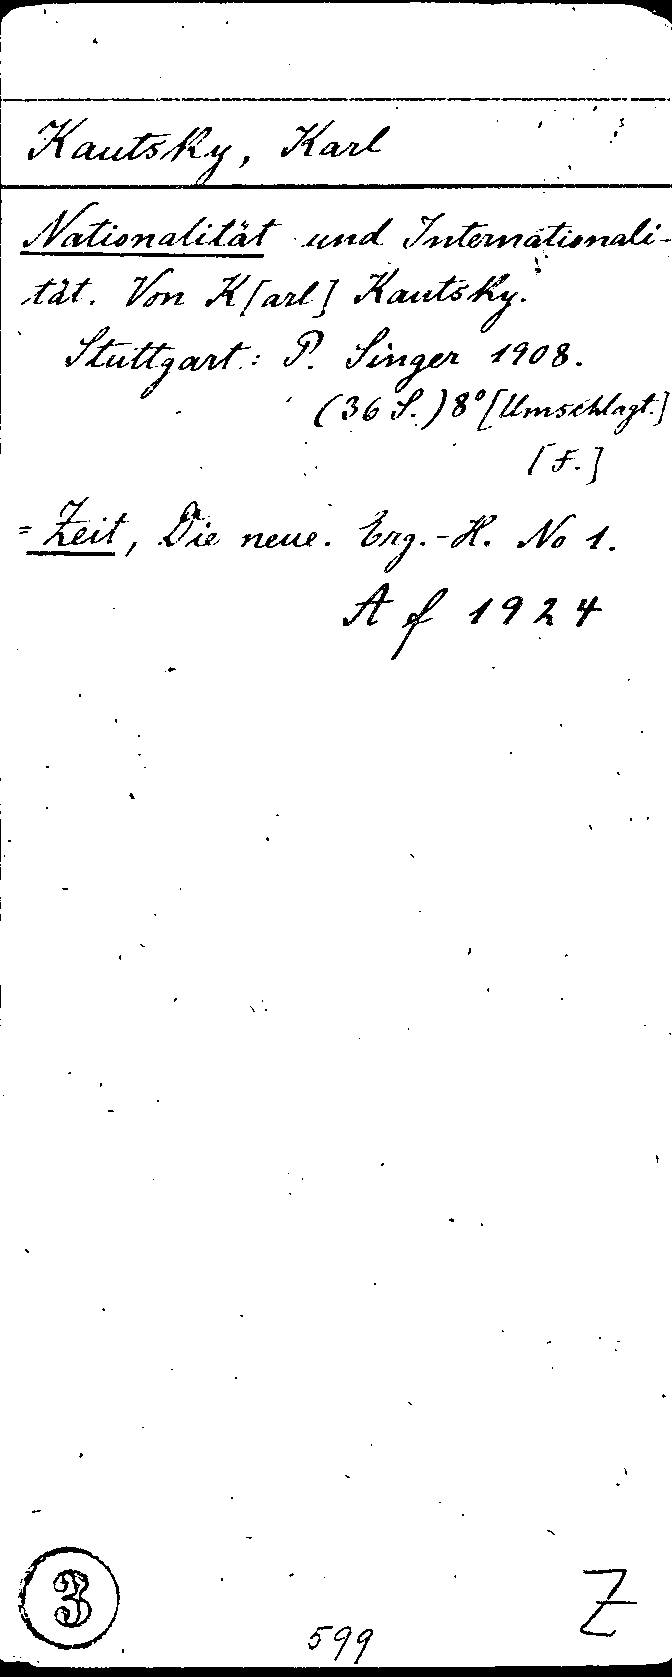 Kautsky, Karl
Nationalität und Internationali-
tät. Von K[arl] Kautsky.
Stuttgart: P. Singer 1908.
(36 S.) 8° [Umschlagt.]
[F.]
= Zeit, Die neue. Erg.-H. No 1.
Af 1924
3
Z
599